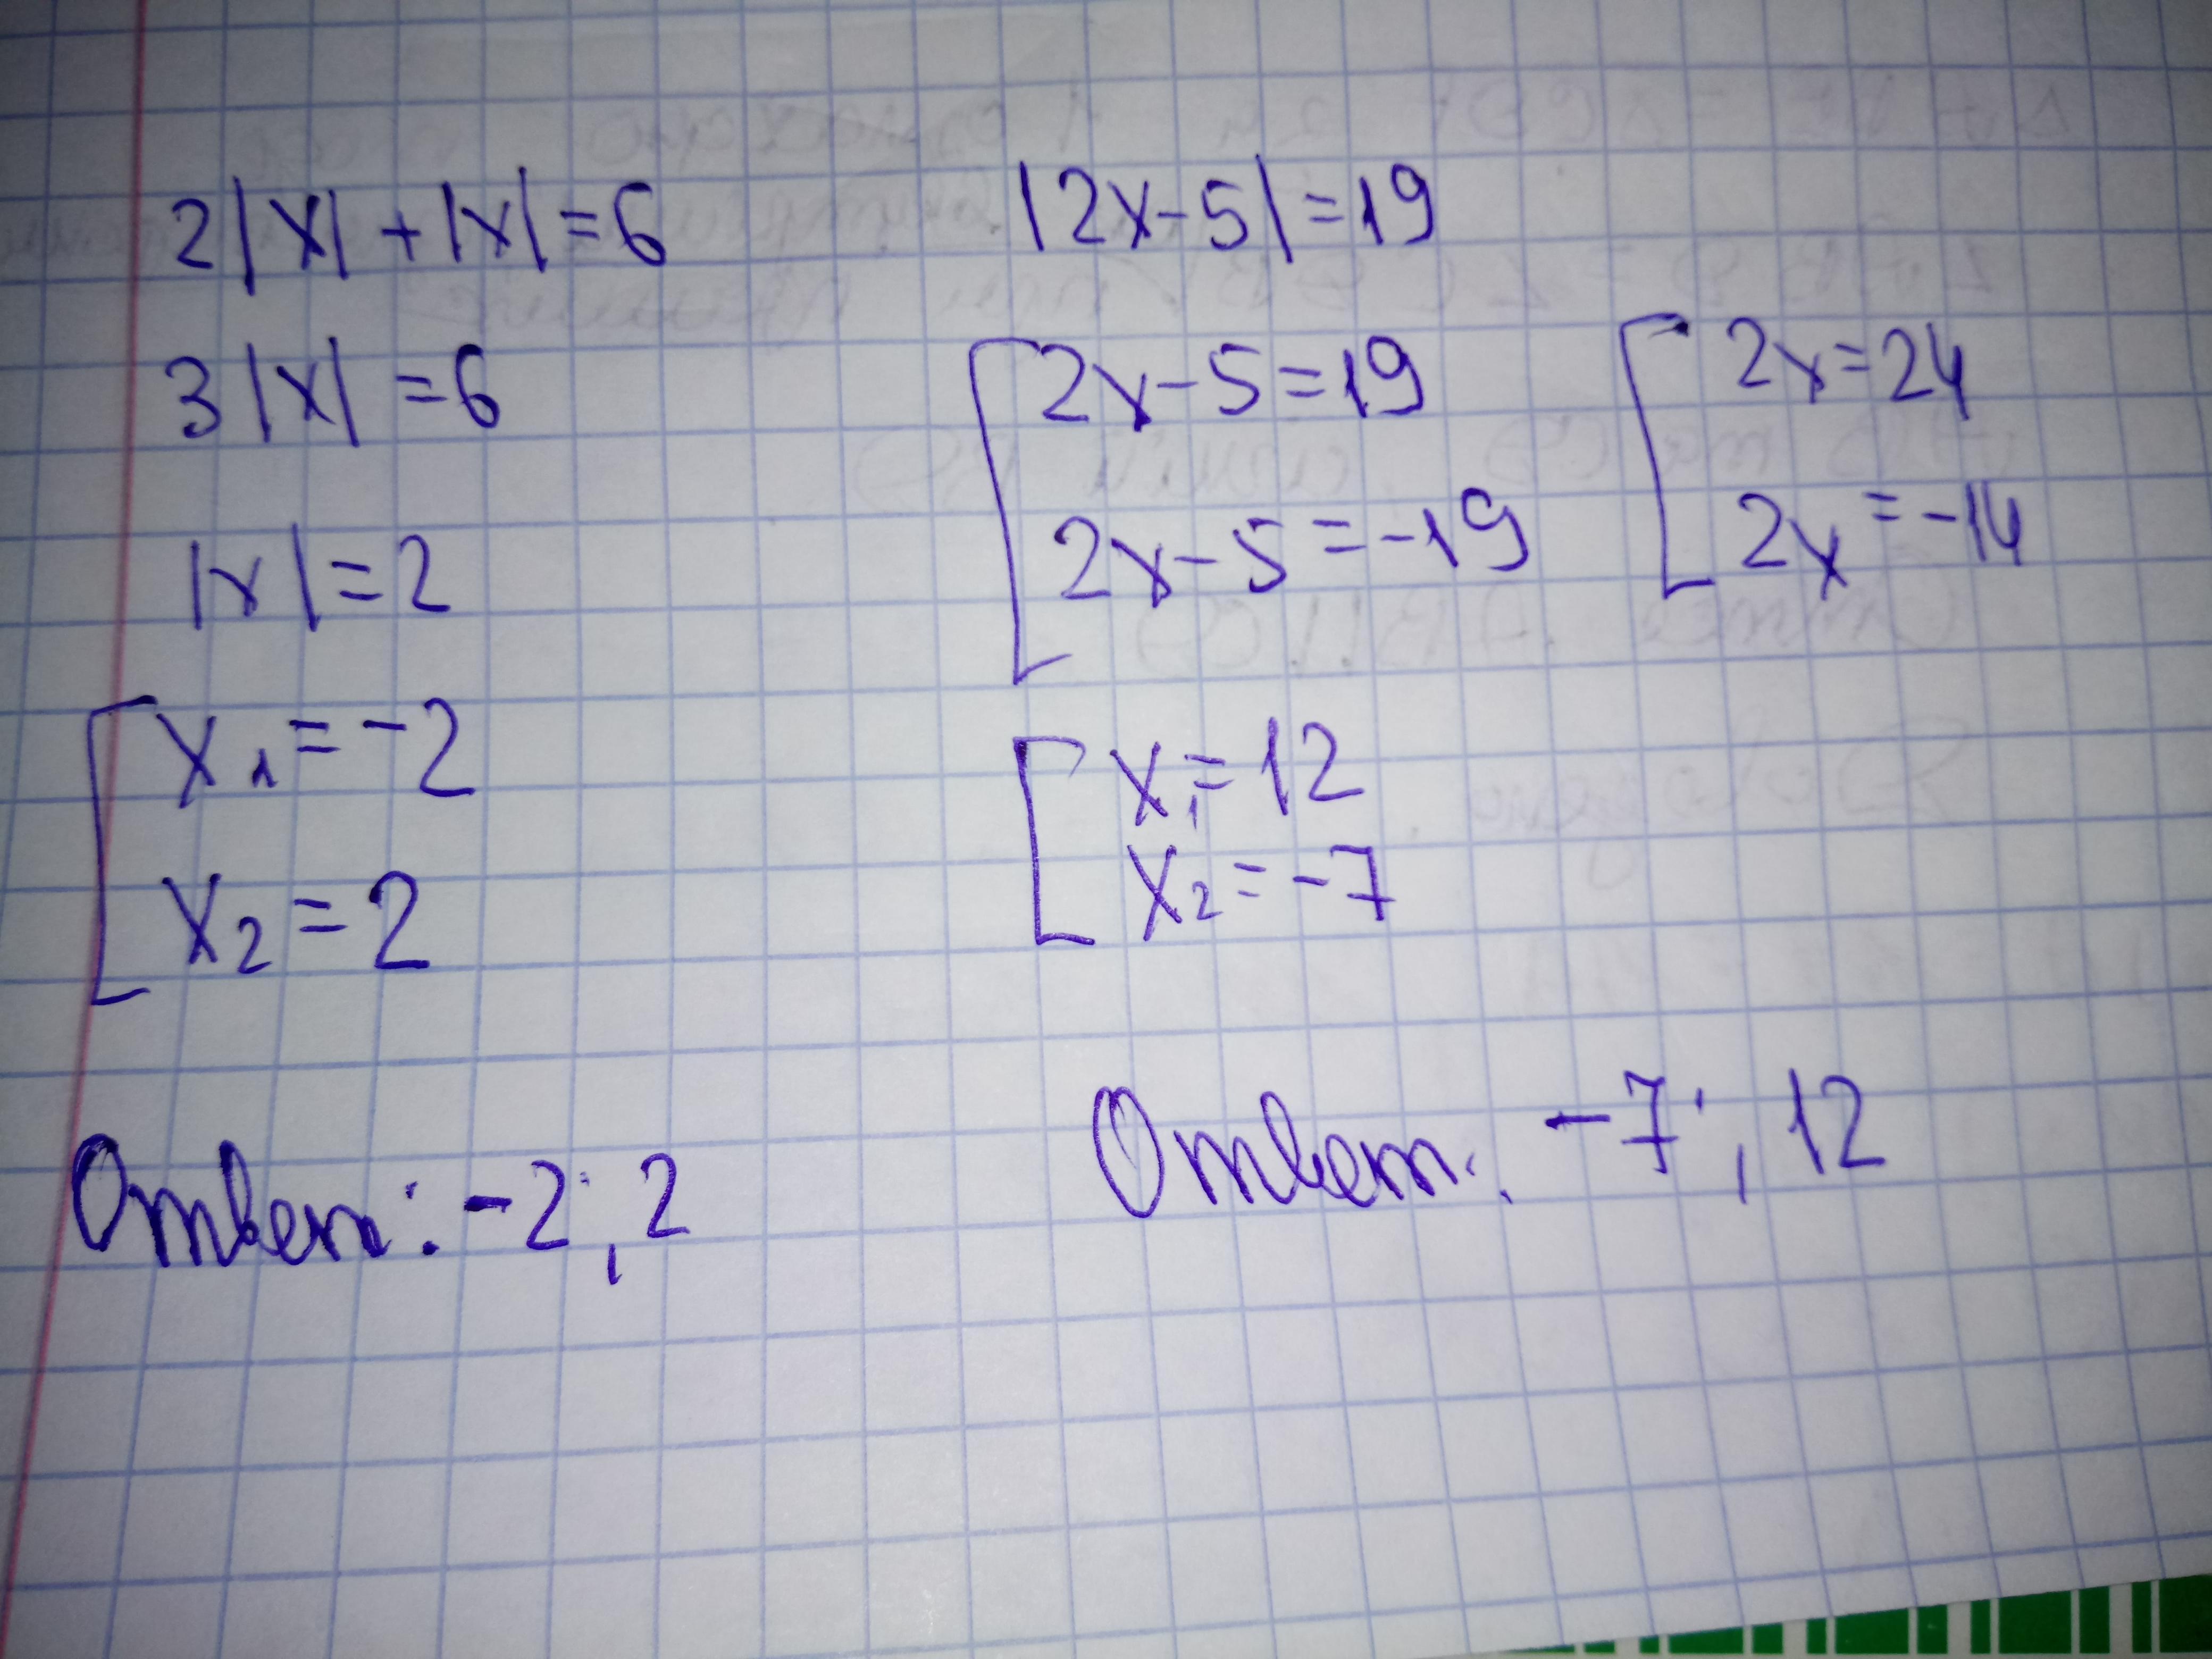 2|x| + |x| = 6
3|x| = 6
|x| = 2
x₁ = -2
x₂ = 2
Ответ: -2; 2
|2x-5| = 19
2x-5 = 19
2x-5 = -19
2x = 24
2x = -14
x₁ = 12
x₂ = -7
Ответ: -7; 12